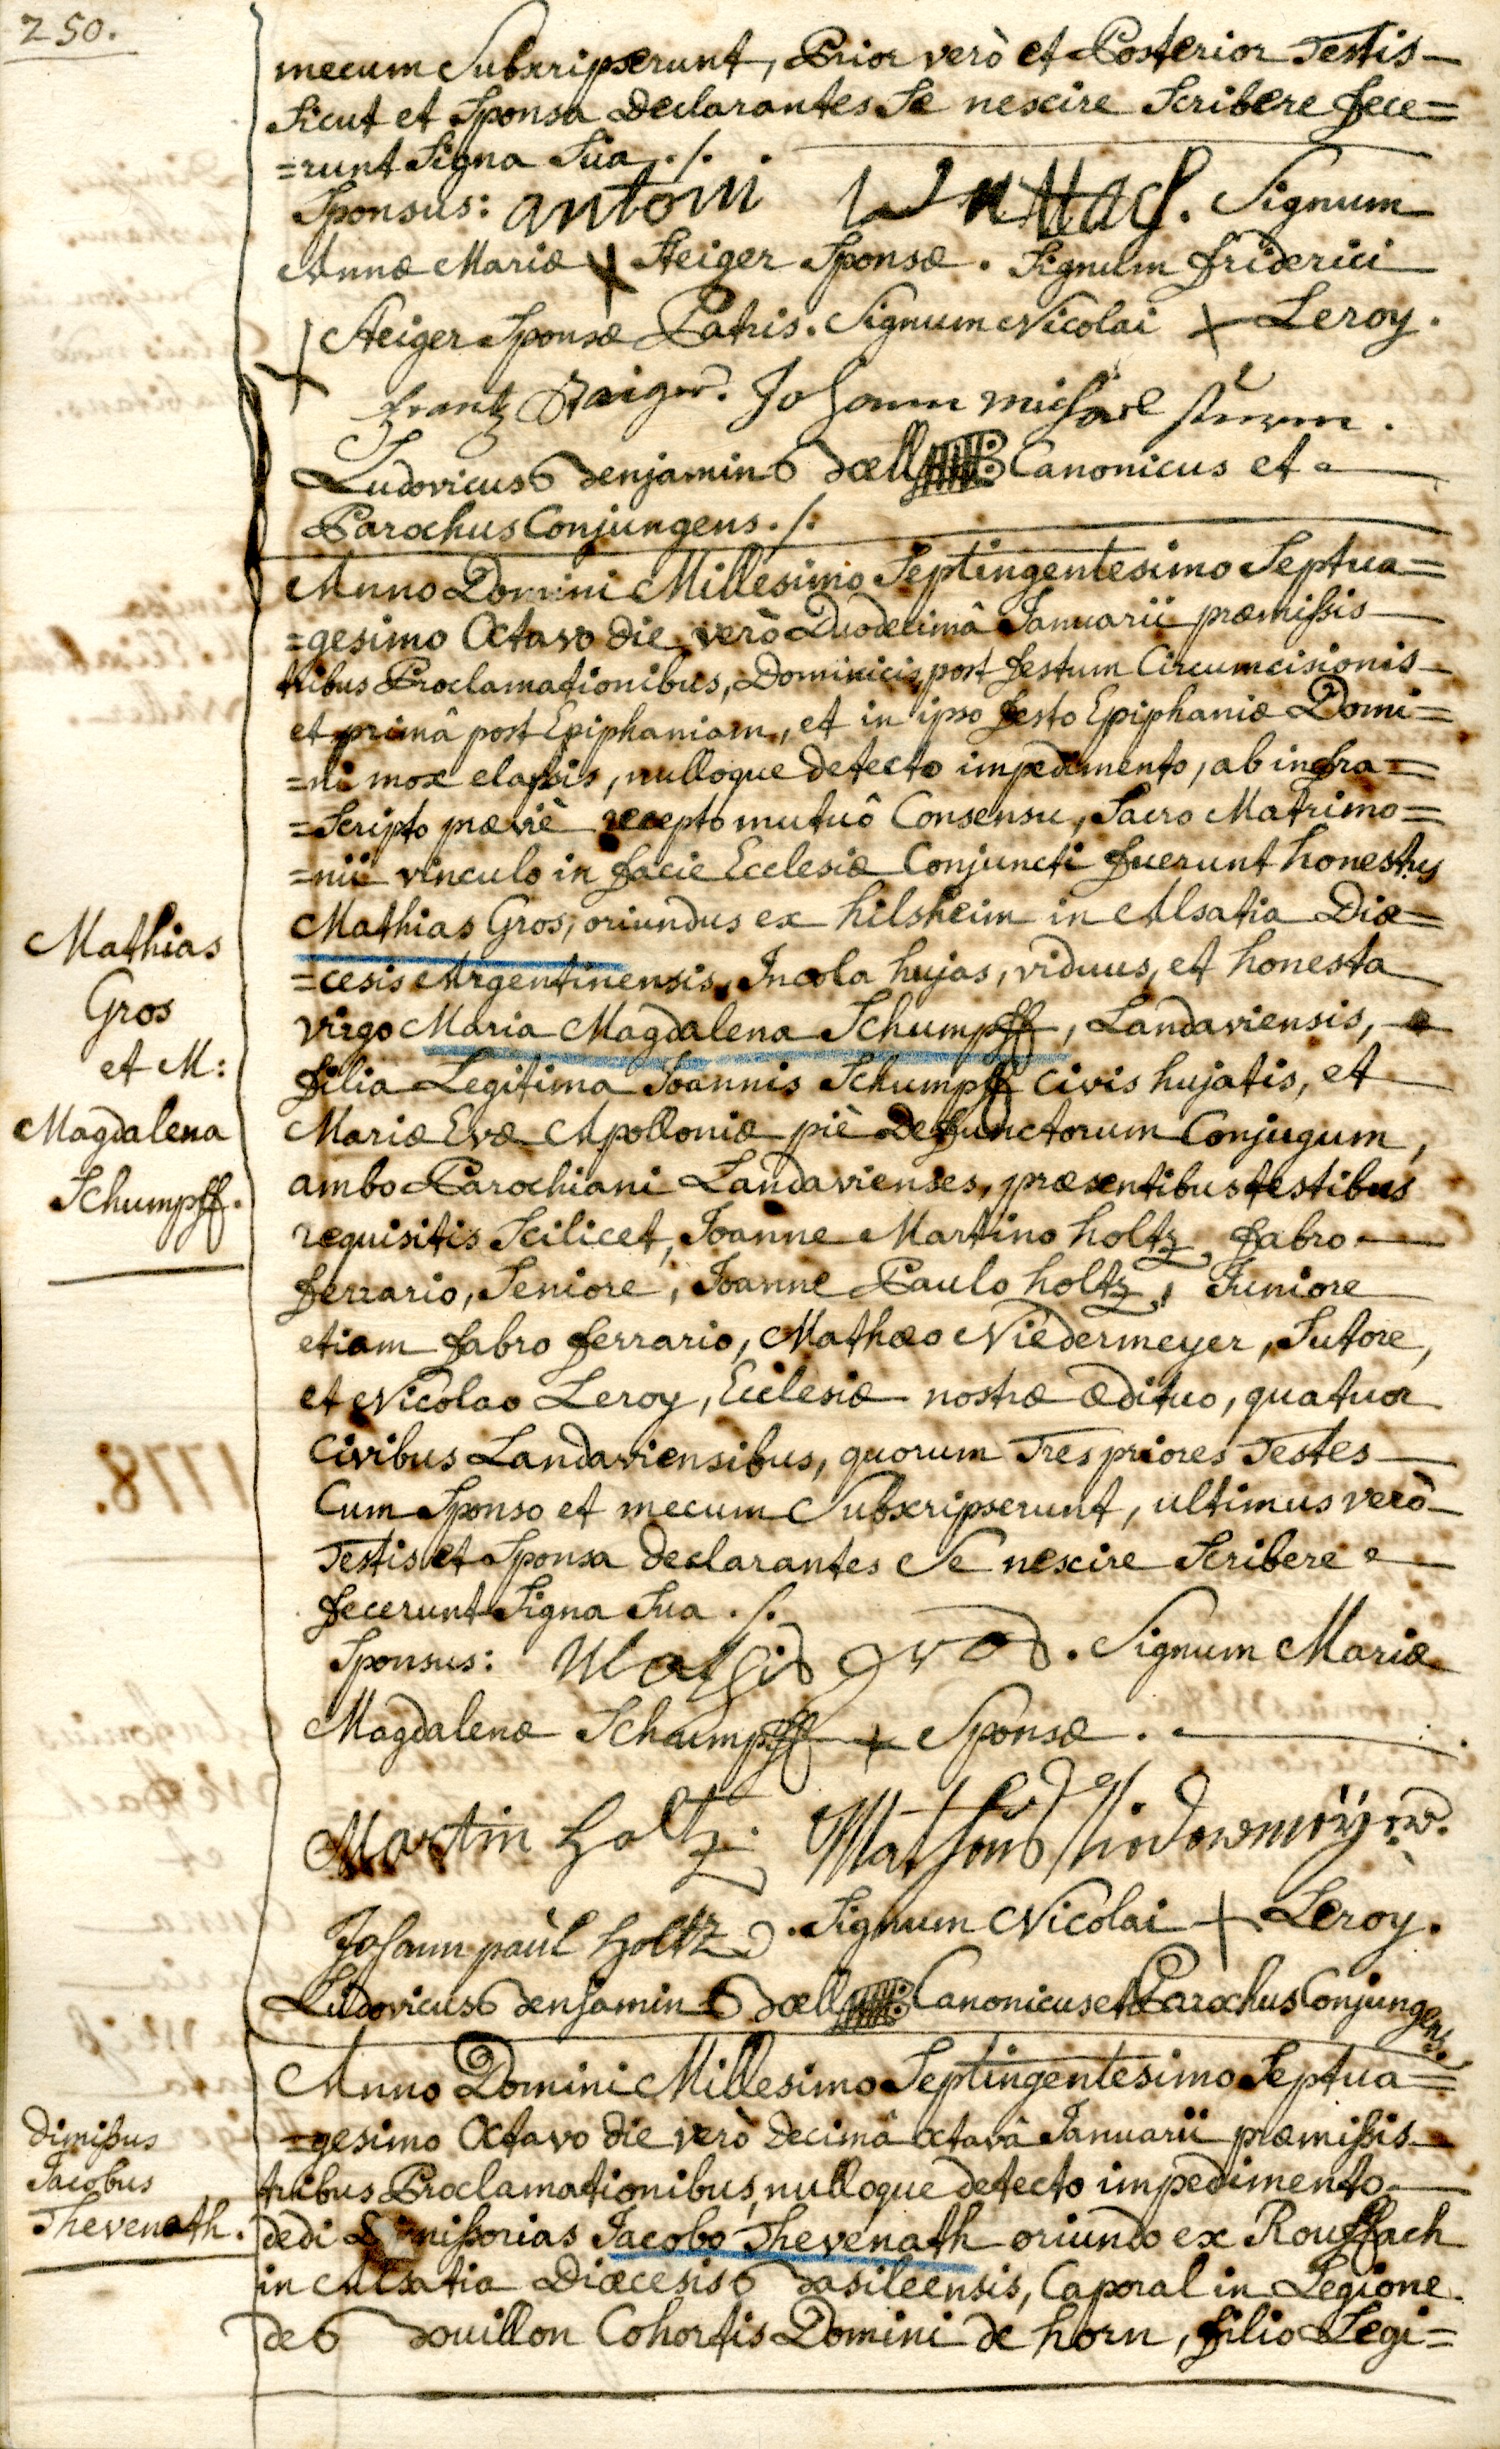 250.
mecum Subscripserunt, Prior verò et Posterior Testis
Sicut et Sponsa Declarantes Se nescire Scribere fece=
=runt Signa Sua ./.
Sponsus: antoni Signum
Annæ Mariæ + Steiger Sponsæ. Signum friderici
+ Steiger Sponsæ Patris. Signum Nicolai + Leroy.
frantz Johann
Ludovicus Benjamin Boell Canonicus et
Parochus Conjungens ./.
Anno Domini Millesimo Septingentesimo Septua=
=gesimo Octavo die verò Duodecimâ Januarii præmissis
tribus Proclamationibus, Dominicis post festum Circumcisionis
et primâ post Epiphaniam, et in ipso festo Epiphaniæ Domi=
=ni mox elapsis, nulloque detecto impedimento, ab infra=
=Scripto præviè recepto mutuô Consensu, Sacro Matrimo=
=nii vinculo in facie Ecclesiæ Conjuncti fuerunt honestus
Mathias Gros, oriundus ex hilsheim in Alsatia Diœ=
=cesis Argentinensis, Incola hujas, viduus, et honesta
virgo Maria Magdalena Schumpff, Landaviensis,
filia Legitima Joannis Schumpff civis hujatis, et
Mariæ Evæ Apolloniæ piè Defunctorum Conjugum,
ambo Parochiani Landavienses, præsentibus testibus
requisitis Scilicet, Joanne Martino holtz, fabro
ferrario, Seniore, Joanne Paulo holtz, Juniore
etiam fabro ferrario, Mathæo Niedermeyer, Sutore,
et Nicolao Leroy, Ecclesiæ nostræ ædituo, quatuor
Civibus Landaviensibus, quorum Tres priores Testes
Cum Sponso et mecum Subscripserunt, ultimus verò
Testis et Sponsa declarantes Se nescire Scribere
fecerunt Signa Sua ./.
Sponsus: Mathis gros. Signum Mariæ
Magdalenæ Schumpff + Sponsæ.
Martin Holtz. Matheus Niedermeÿer.
Johann paùl Holtz. Signum Nicolai + Leroy.
Ludovicus Benjamin Boell Canonicus et Parochus Conjungens.
Anno Domini Millesimo Septingentesimo Septua=
=gesimo Octavo die verò Decimâ octavâ Januarii præmissis
tribus Proclamationibus, nulloque detecto impedimento
dedi Dimissorias Jacobo Thevenath oriundo ex Rouffach
in Alsatia Diœcesis Basileensis, Caporal in Legione
de Bouillon Cohortis Domini de horn, filio Legi=
Mathias
Gros
et M:
Magdalena
Schumpff.
Dimissus
Jacobus
Thevenath.